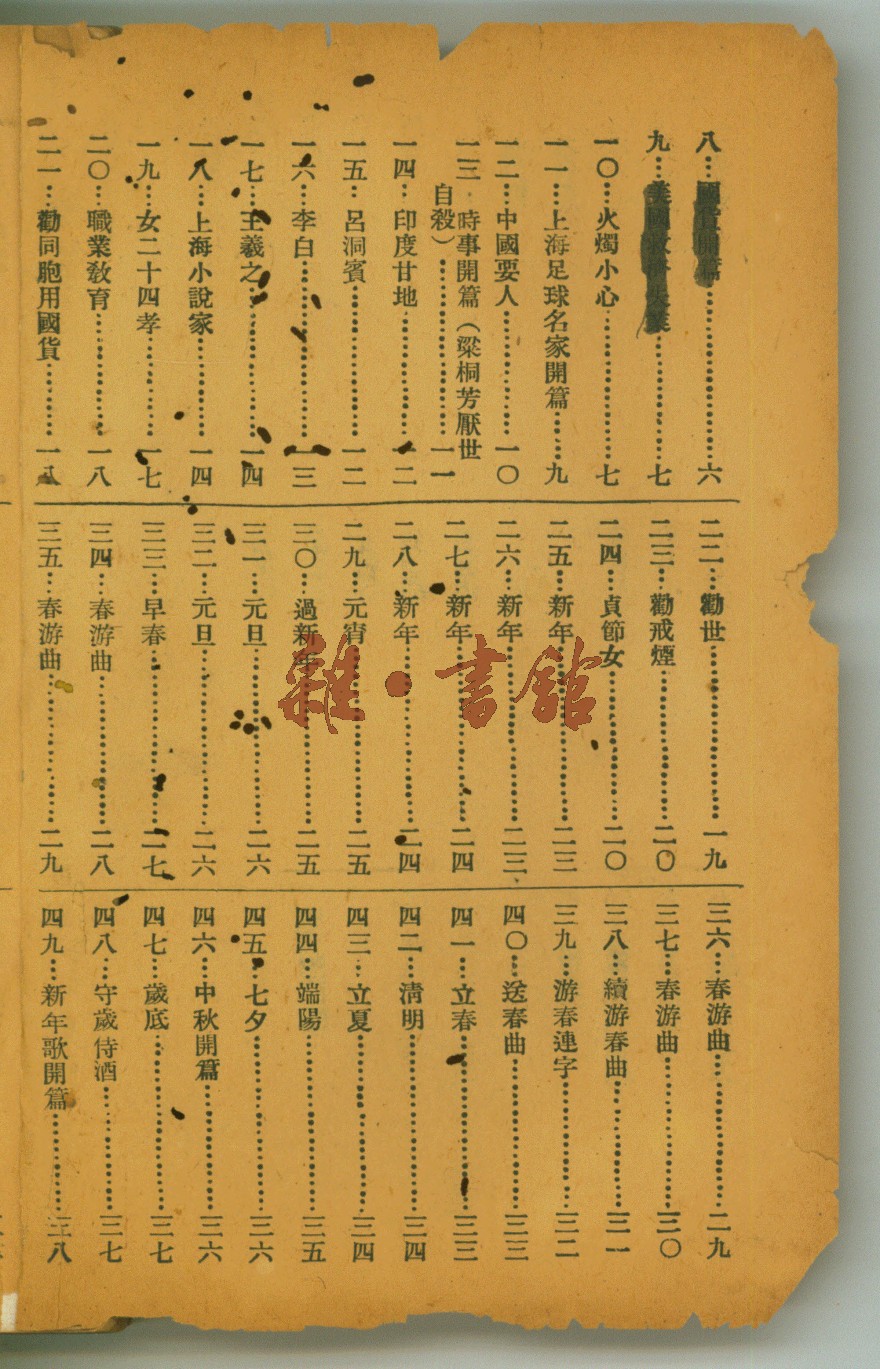 八…國貨開篇…六
九…美國救濟失業…七
一〇…火燭小心…七
一一…上海足球名家開篇…九
一二…中國要人…一〇
一三…時事開篇（梁桐芳厭世
自殺）…一一
一四…印度甘地…一二
一五…呂洞賓…一二
一六…李白…一三
一七…王羲之…一四
一八…上海小說家…一四
一九…女二十四孝…一七
二〇…職業教育…一八
二一…勸同胞用國貨…一八
二二…勸世…一九
二三…勸戒煙…二〇
二四…貞節女…二〇
二五…新年…二三
二六…新年…二三
二七…新年…二四
二八…新年…二四
二九…元宵…二五
三〇…過新年…二五
三一…元旦…二六
三二…元旦…二六
三三…早春…二七
三四…春游曲…二八
三五…春游曲…二九
三六…春游曲…二九
三七…春游曲…三〇
三八…續游春曲…三一
三九…游春連字…三二
四〇…送春曲…三三
四一…立春…三三
四二…淸明…三四
四三…立夏…三四
四四…端陽…三五
四五…七夕…三六
四六…中秋開篇…三六
四七…歲底…三七
四八…守歲侍酒…三七
四九…新年歌開篇…三八
雜·書館